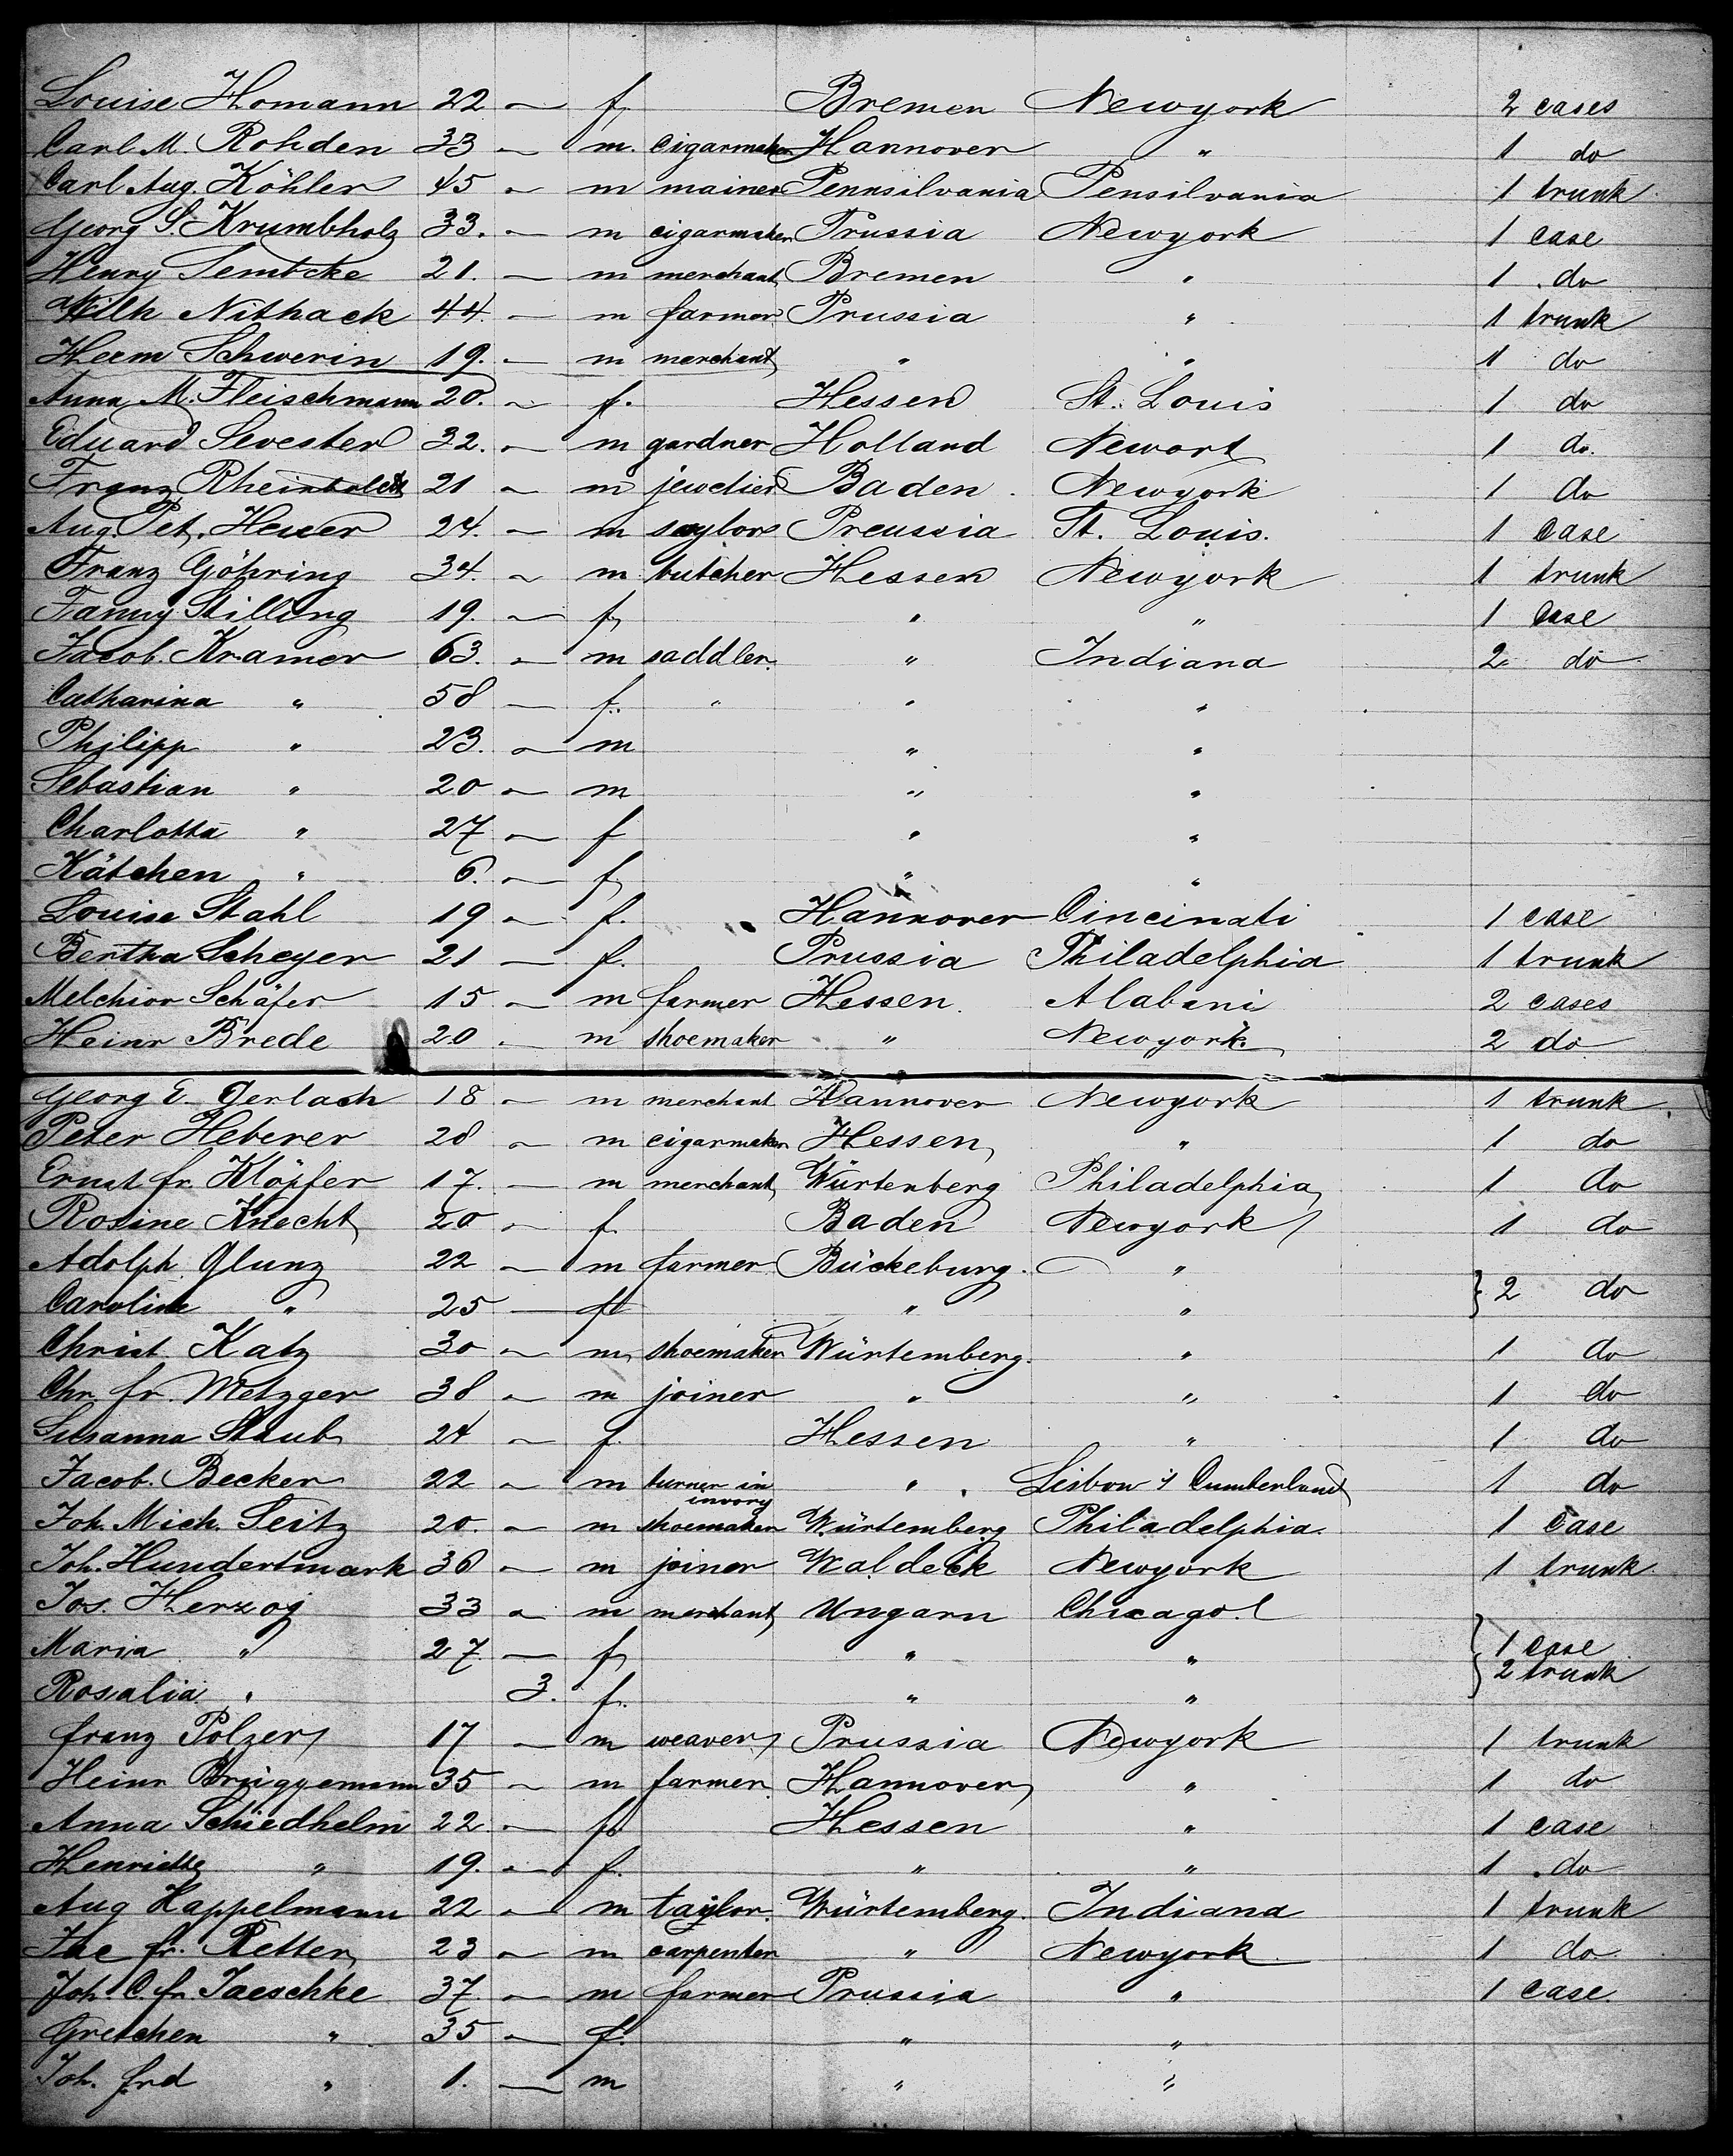 Louise Homann 22 — f Bremen Newyork 2 cases
Carl M. Rohden 33 — m. cigarmaker Hannover " 1 do
Carl Aug. Köhler 45 — m mainer Pennsilvania Pensilvania 1 trunk
Georg S. Krumbholz 33. — m cigarmaker Prussia Newyork 1 case
Henry Lembcke 21. — m merchant Bremen " 1 do
Wilh Nithack 44. — m farmer Prussia " 1 trunk
Herm Schwerin 19. — m merchant " " 1 do
Anna M. Fleischmann 20. — f. Hessen St. Louis 1 do
Eduard Sevester 32. — m gardner Holland Newort 1 do.
Franz 21 — m jewelier Baden Newyork 1 do
Aug. Pet. Heuer 24. — m saylor Preussia St. Louis. 1 case
Franz Göhring 34. — m butcher Hessen Newyork 1 trunk
Fanny Stilling 19. — f " " 1 case
Jacob. Kramer 63. — m saddler. " Indiana 2 do
Catharina " 58 — f. " " "
Philipp " 23. — m " "
Sebastian " 20 — m " "
Charlotta " 27 — f " "
Kätchen " 6. — f " "
Louise Stahl 19 — f. Hannover Cincinati 1 case
Bertha Scheyer 21 — f. Prussia Philadelphia 1 trunk
Melchior Schäfer 15 — m farmer Hessen. Alabani 2 cases
Heinr Brede 20 — m shoemaker " Newyork 2 do
Georg E. Gerlach 18 — m merchant Hannover Newyork 1 trunk
Peter Heberer 28 — m cigarmaker Hessen " 1 do
Ernst fr. Klöpfer 17. — m merchant Würtenberg Philadelphia 1 do
Rosine Knecht 20 — f. Baden Newyork 1 do
Adolph Glunz 22 — m farmer Bückeburg. " } 2 do
Caroline " 25 — f " "
Christ. Katz 30 — m shoemaker Würtemberg. " 1 do
Chr. fr. Metzger 38 — m joiner " " 1 do
Susanna Staub 24 — f. Hessen " 1 do
Jacob. Becker 22 — m turner in invory " Lisbon Cumberland 1 do
Joh. Mich. Seitz 20. — m shoemaker Würtemberg Philadelphia. 1 case
Joh. Hundertmark 36 — m joiner Waldeck Newyork 1 trunk
Jos. Herzog 33 — m merchant Ungarn Chicago.
Maria " 27. — f " " } 1 case
Rosalia " 3. f. " " 2 trunk
franz Polzer 17 — m weaver Prussia Newyork 1 trunk
Heinr Brüggemann 35 — m farmer Hannover " 1 do
Anna Schiedhelm 22 — f Hessen " 1 case
Henriette " 19. — f. " " 1 do
Aug Happelmann 22 — m taylor. Würtemberg. Indiana 1 trunk
fr. Retter 23 — m carpenter " Newyork 1 do
Joh. C. fr. Jaeschke 37. — m farmer Prussia " 1 case
Gretchen " 35 — f. " "
Joh. frd " 1. — m " "